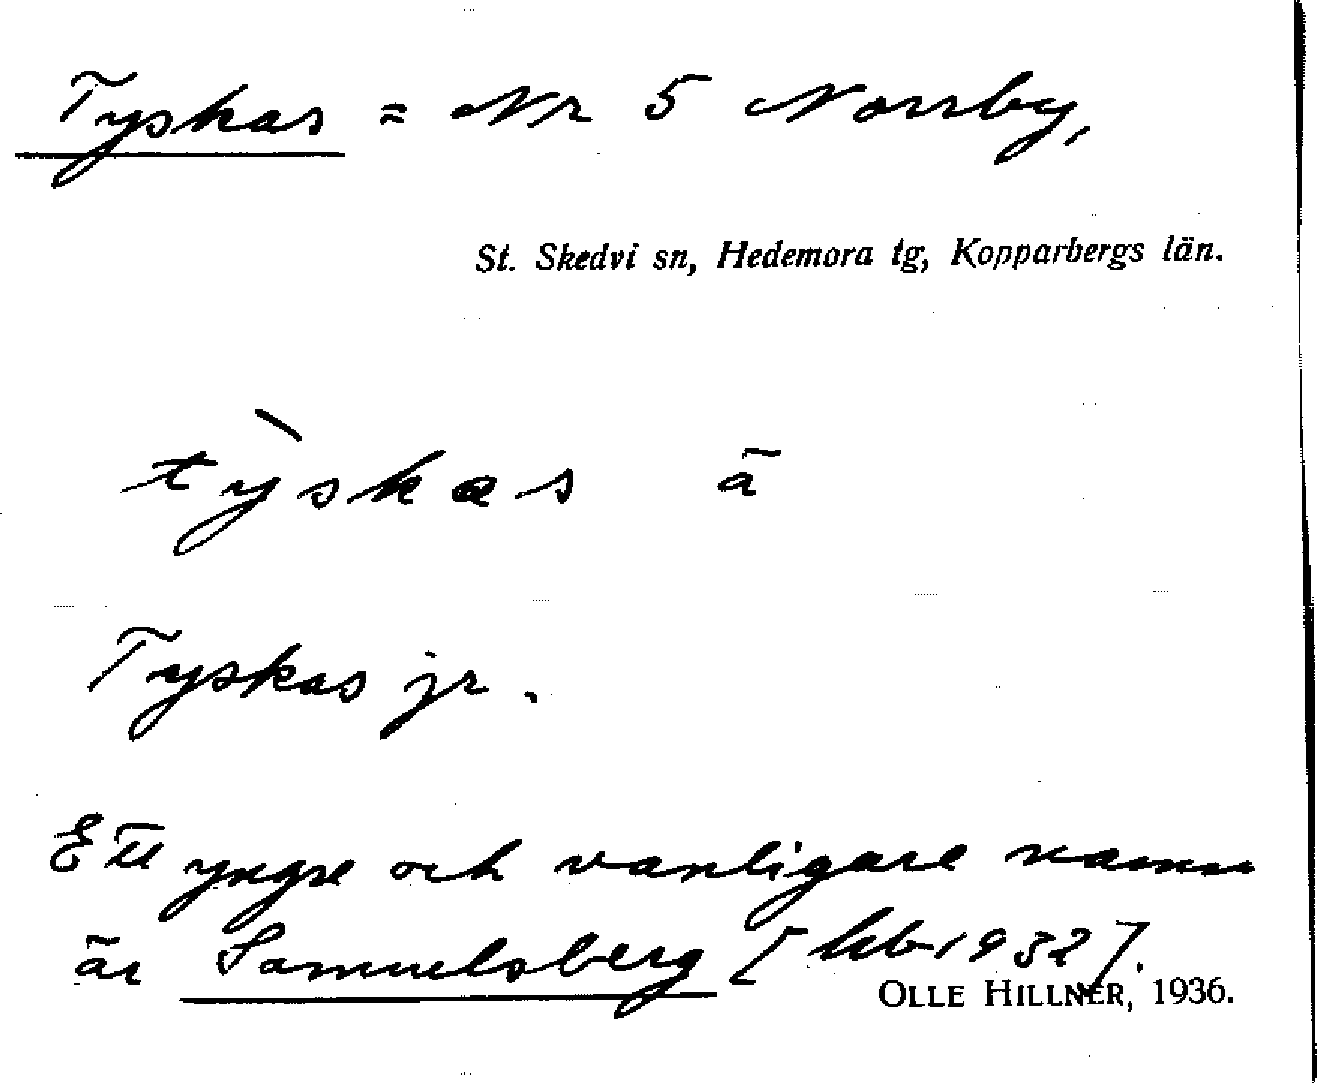 Tyskas = Nr 5 Norrby,
St. Skedvi sn, Hedemora tg, Kopparbergs län.
tỳskas ä
Tyskas jr.
Ett yngre och vanligare namn
är Samuelsberg [hb 1932].
OLLE HILLNER, 1936.